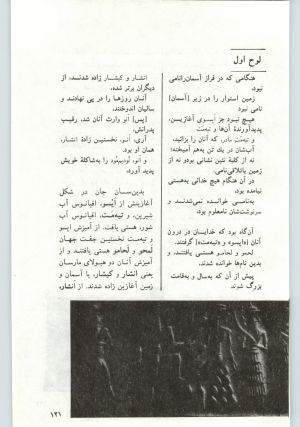 لوح اول
هنگامی که در فراز آسمان رانامی
نبود.
زمین استوار را در زیر [آسمان]
نامی نبود
هیچ نبود جز آپسوی آغازیسن،
پدیدآورندهٔ آن‌ها و تیه‌مت
و تیه‌مت مادر، که آنان را بزائید،
آب‌شان در یك تن به‌هم آمیخته؛
نه از کلبهٔ نئین نشانی بود نه از
زمین باتلاقی نامی.
در آن هنگام هیچ خدائی به‌هستی
نیامده بود.
به‌نامی خوانده نمی‌شدند و
سرنوشت‌شان نامعلوم بود.
آن‌گاه بود که خدایسان در درون
آنان [«آپسو» و «تیه‌مت»] گرفتند.
لحمو و لحامو هستسی یافتنسد، و
بدین نام‌ها خوانده شدند.
پیش از آن که به‌سال و به‌قامت
بزرگ شوند
انشار و کیشار زاده شدنسد، از
دیگران برتر شده.
آنان روزها را در پی نهادند و
سالیان اندوختند.
[پس] آنو وارث آنان شد، رقیسب
پدرانش.
آری، آنو، نخستین زادهٔ انشار،
همان او بود.
و آنو، نودیم‌مود را به‌شاکلهٔ خویش
پدید آورد.
بدین‌سسان جان در شکل
آغازینش از آپسو، اقیانوس آب
شیرین، و تیه‌مت، اقیانوس آب
شور، هستی یافت. از آمیزش آپسو
و تیه‌مت نخستین جفت جهان
لحمو و لحامو هستی یافتند و از
آمیزش آنان دو هیولای مارسان
یعنی انشار و کیشار، یا آسمان و
زمین آغازین زاده شدند. از انشار،
۱۲۱